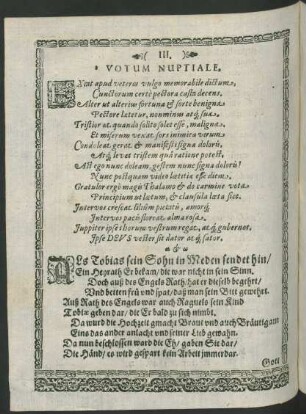 III.
VOTUM NUPTIALE.
EXtat apud veteres vulgo memorabile dictum,
Cunctorum certè pectora casta decens.
Alter ut alterius fortunâ & sorte benignâ
Pectore lætetur, nonminus atq; suâ.
Tristetur quando solito sale esse, maligna,
Et miserum vexat sors inimica virum.
Condoleat, gerat & manifesti signa doloris,
Atq; levet tristem quâ ratione potest.
Ast ego nunc doleam, gestem nunc signa doloris?
Nunc postquam video lætitiæ esse diem,
Gratulor ergò magis Thalamo & do carmine vota
Principium ut latum, & clausula læta siet.
Intervos crescat
Intervos pax floreat almarosa.
Juppiter ipse thorum vestrum regat, atq; gubernet,
Ipse DEUS vester sit dator atq; sator.
ALs Tobias sein Sohn in Meden sendet hin/
Ein Heyrath Er bekam/ die war nicht in sein Sinn,
Doch auß des Engels Rath/ hat er dieselb begehrt/
Und beiten früh und spat/ daß man seine Bitt gewehrt.
Auß Rath des Engels war auch Raguels sein Kind
Tobiæ geben dar/ die Er bald zu sich nimbt.
Da wurd die Hochzeit gmacht Braut und auch Bräutigam
Eins das ander anlacht und seiner Lieb gewahn.
Da nun beschlossen ward die Eh/ gaben Sie dar/
Die Händ/ es wird gespart kein Arbeit jmmerdar.
Gott